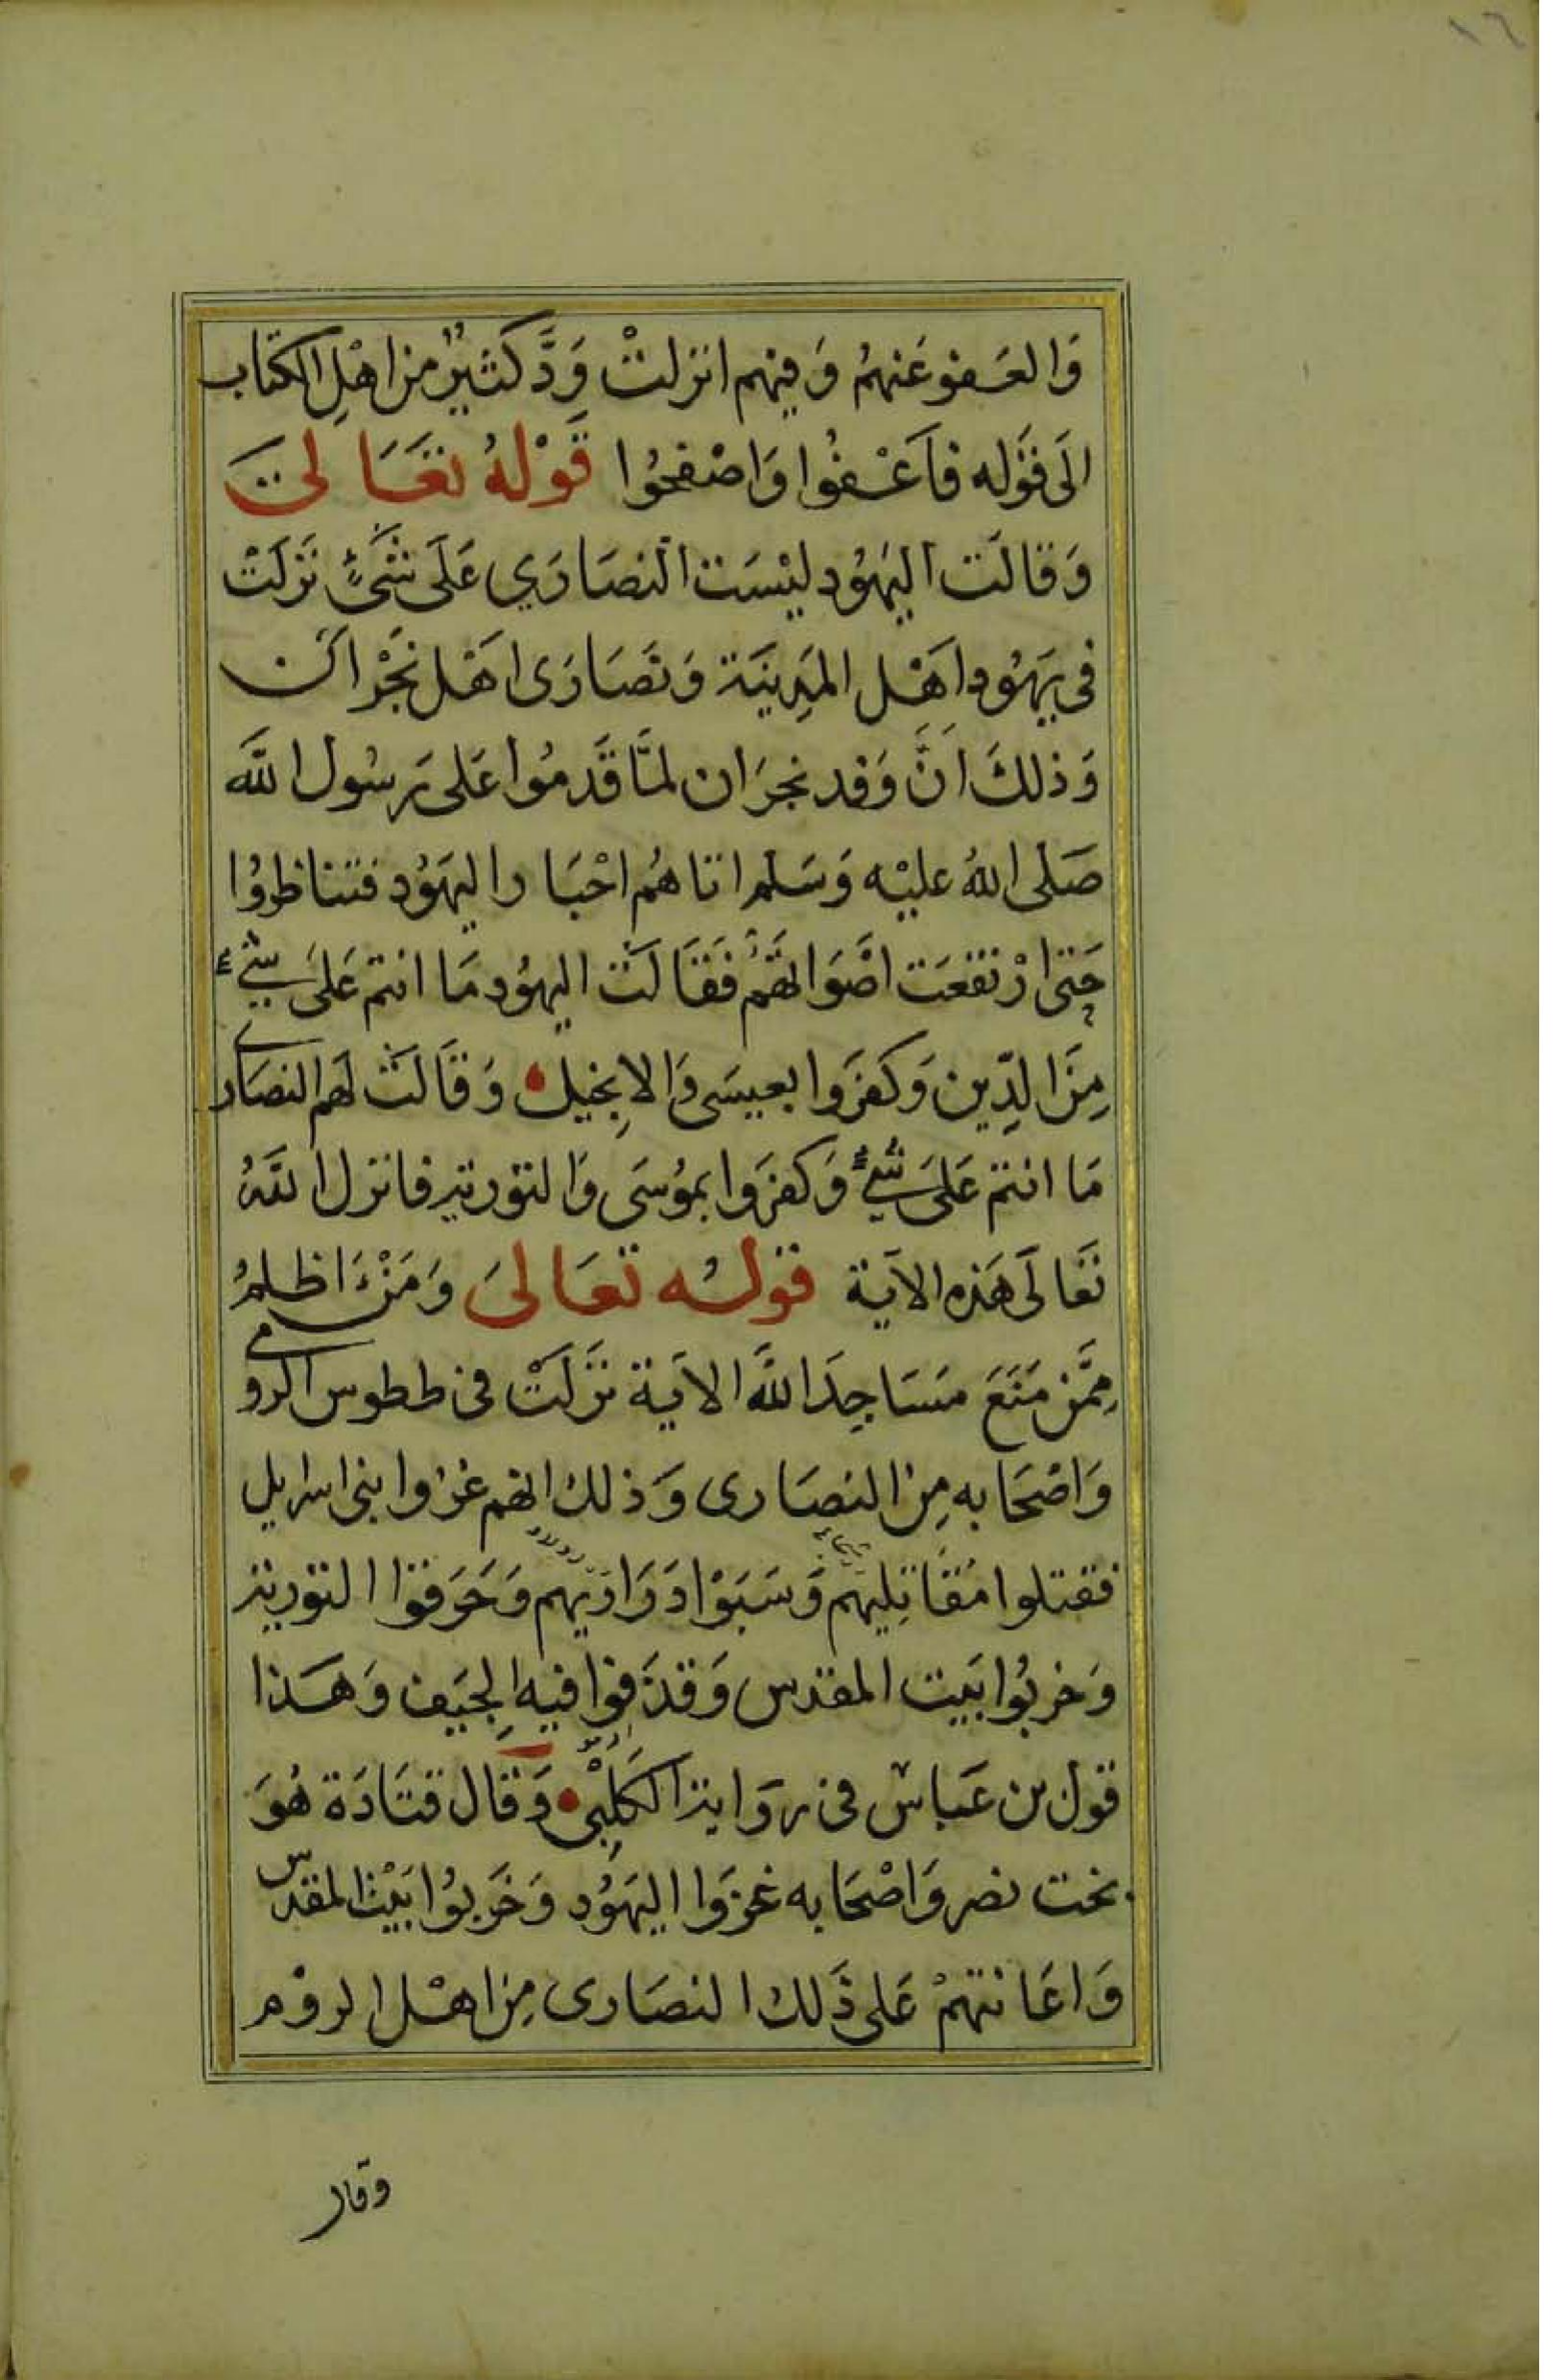 ١٦
وَالعَفو عَنهُم وَفيهم انزلتْ وَدَّ كَثيرٌ من اهْلِ الكتاب
الَى قَوله فَاعْفُوا وَاصْفحُوا قَوْلهُ تعَالىَ
وَقالَت اليَهُود ليْسَت النصَارَي عَلَى شَىْءٍ نَزلَتْ
فى يهَوُد اهْل المَدِينَة وَنَصَارَى اهْل نَجْرَان
وَذلكَ اَنَّ وَفد نجرَان لمَّا قَدمُوا عَلى رَسُول الله
صَلى اللهُ عليْه وَسَلم اتاهُم احْبَار اليهَوُد فتناظروُا
حَتى ارْتفعَت اصْوَاتهُم فَقَالَت اليهوُد مَا انتم عَلىَ شيء
مِنَ الدِّين وَكفرَوا بعيسَى وَالاِنجيل وَقَالَت لهم النصَارى
مَا انتم عَلىَ شيءٍ وَكفرَوا بموُسَى وَالتوْرية فانزل اللهُ
تَعَالَى هَذه الآية قولُه تعَالىَ وَمَنْ اَظلمُ
مِمَّن مَنَعَ مسَاجِدَ اللهَ الاَية نَزَلَتْ فى ططوس الرومى
وَاصْحَابه مِن النصَارى وَذلك انهم غزوا بنى اسرايل
فقتلوا مُقَاتِليهم وَسَبَوْا دَرَاريهم وَحَرَقوا التوْرية
وَخربُوا بَيت المقدس وَقذَفوا فيهِ الجيَف وَهَذا
قول بن عَباس فى روَاية الكَلِبْى وَقال قتَادَة هُوَ
بخت نصر وَاصْحَابه غزَوا اليهَوُد وَخَربوُا بَيْت المقدس
وَاعَانتهمْ عَلى ذَلك النصَارى مِن اهْل الروْم
وقال